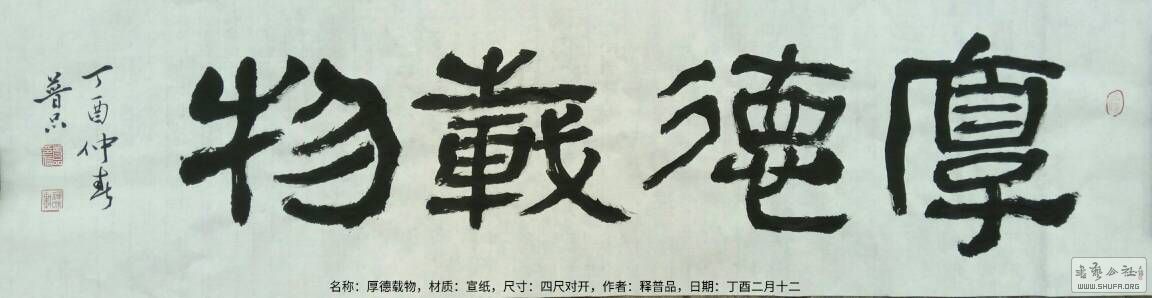 厚德載物
丁酉仲春
普品
名称：厚德载物，材质：宣纸，尺寸：四尺对开，作者：释普品，日期：丁酉二月十二
WWW.SHUFA.ORG